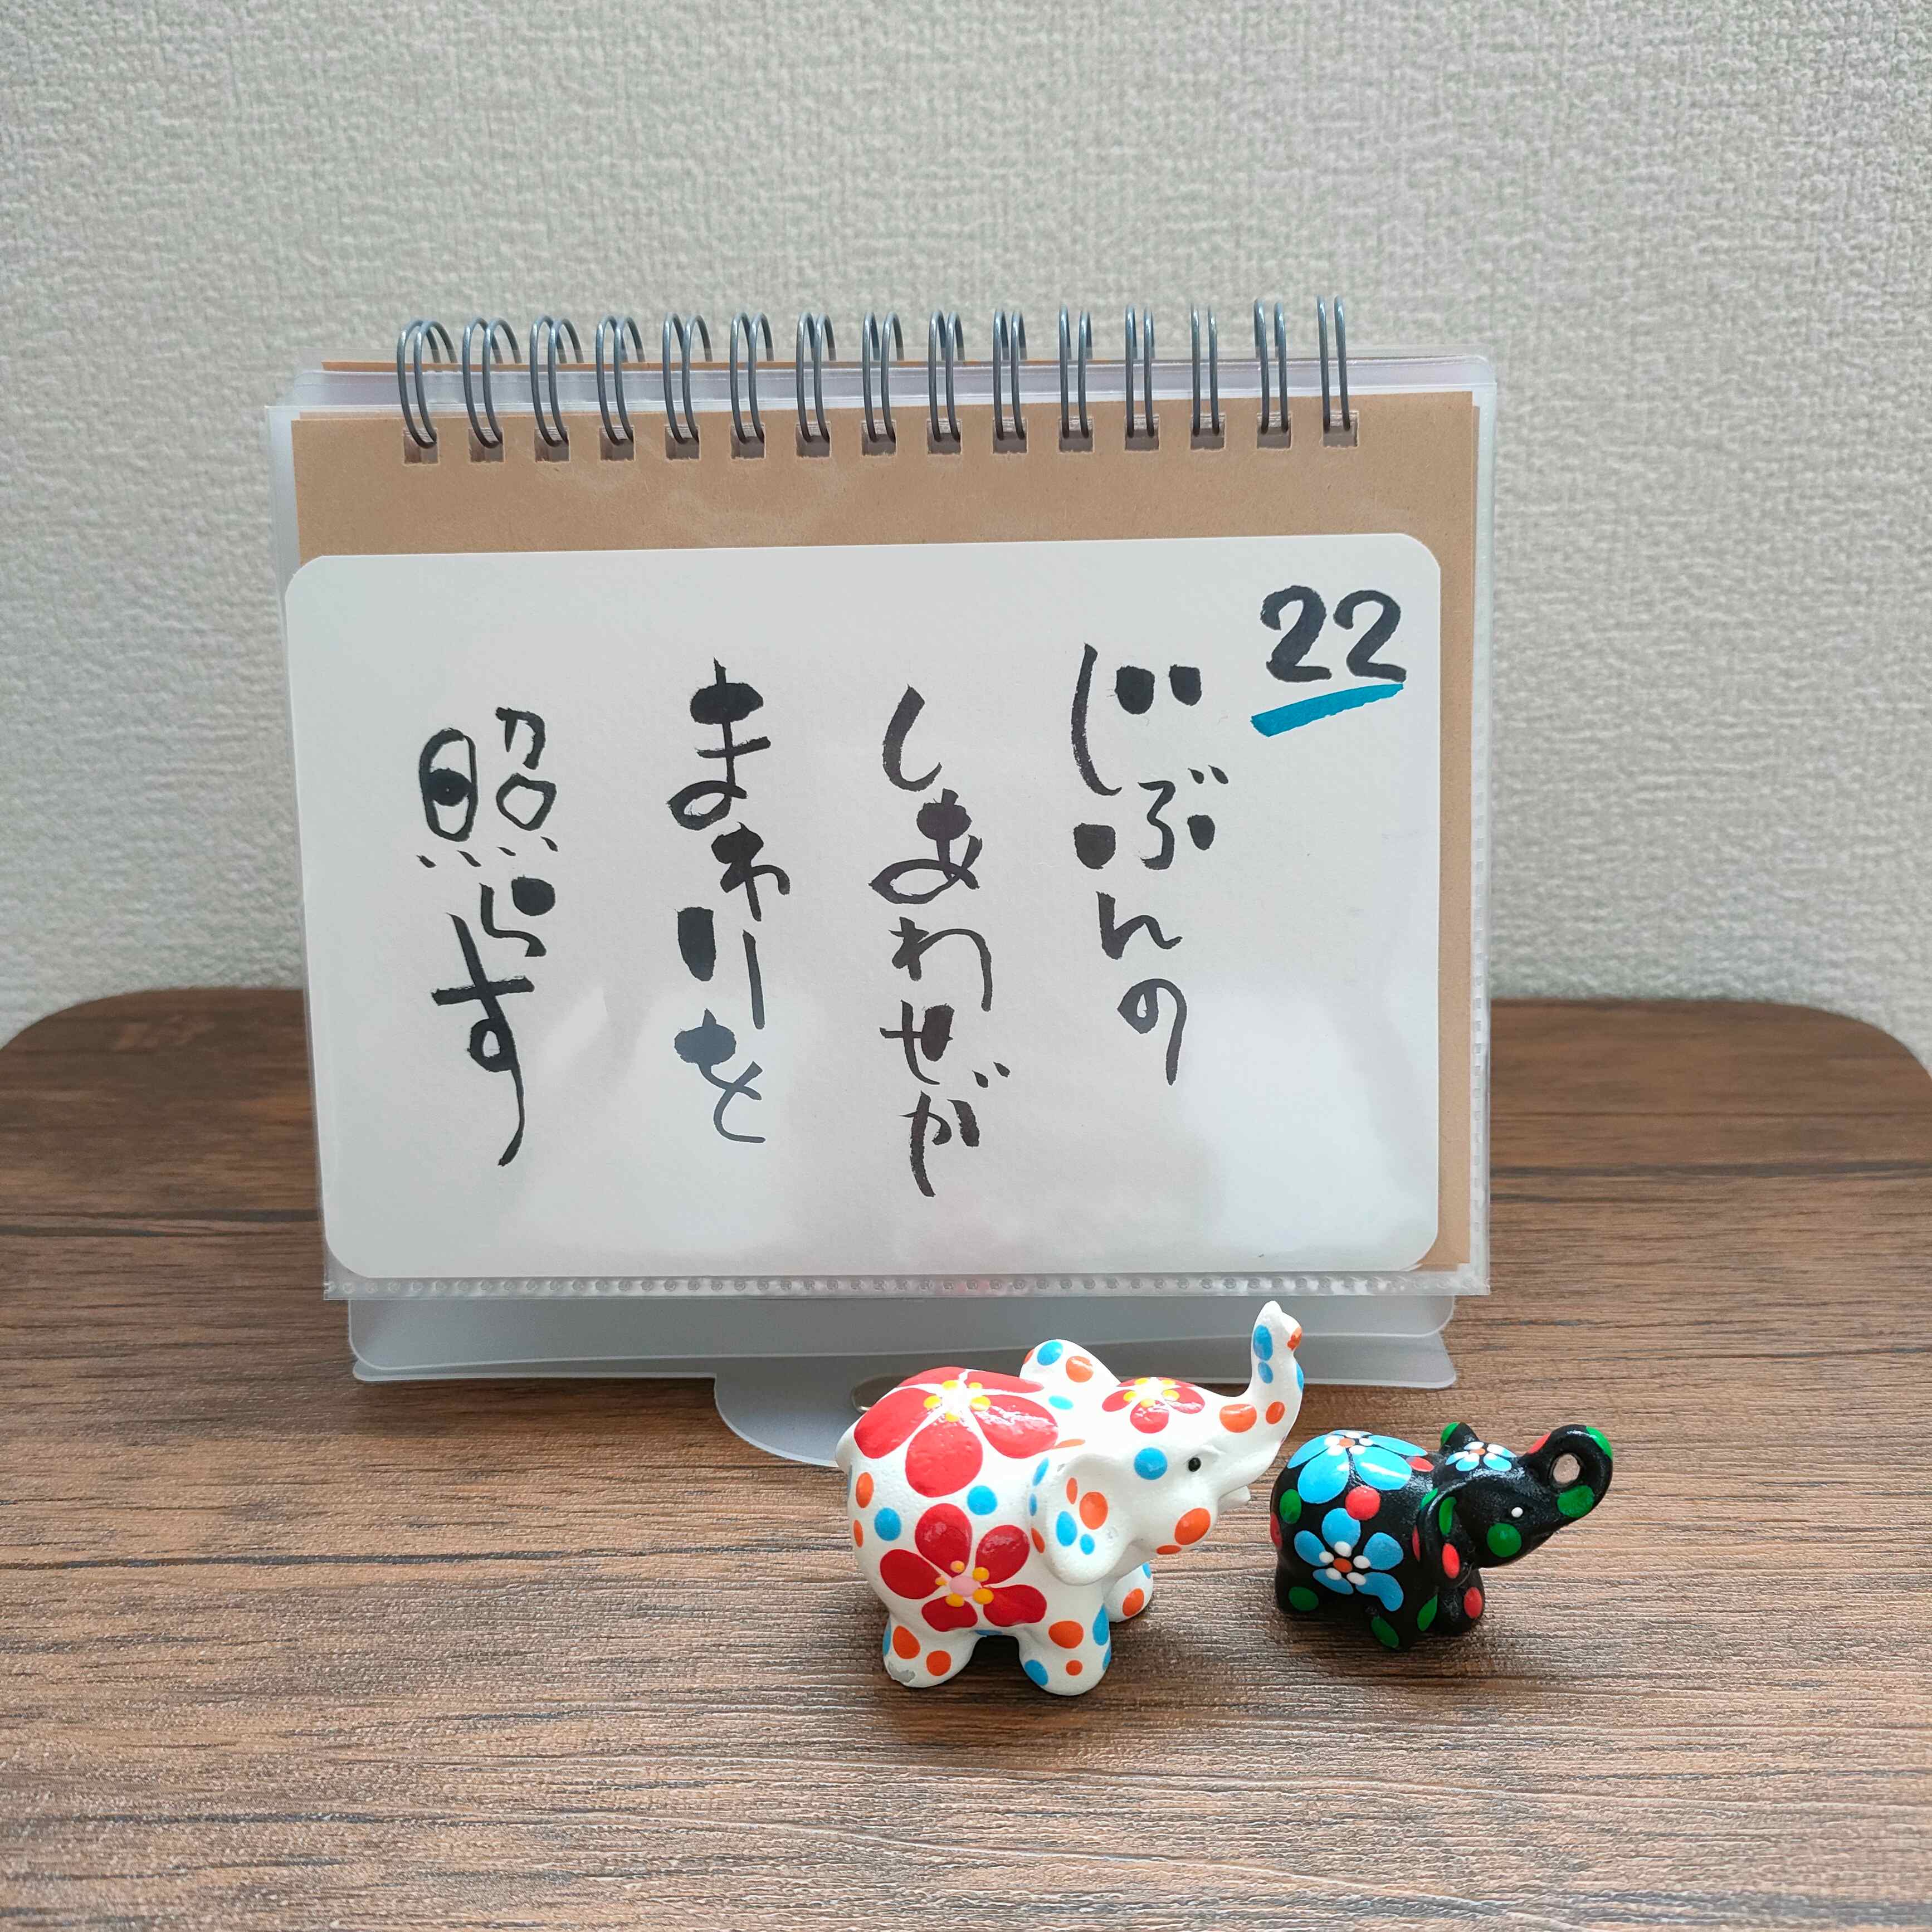 22
じぶんの
しあわせが
まわりを
照らす